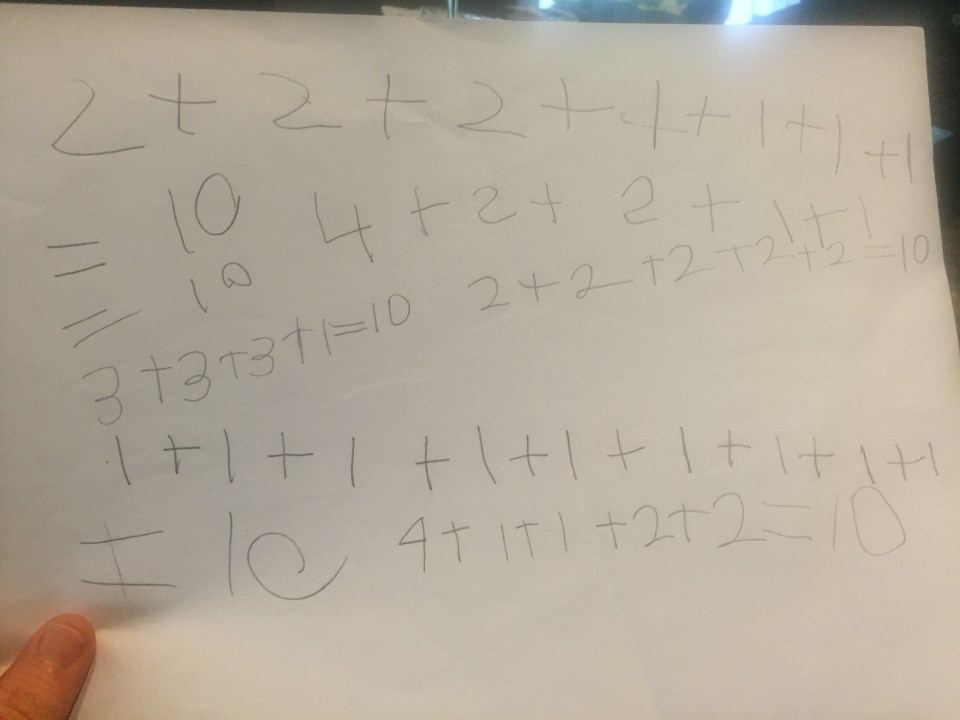 2 + 2 + 2 + 1 + 1 + 1 + 1
= 10 4 + 2 + 2 + 1 + 1
= 10 2 + 2 + 2 + 2 + 2 = 10
3 + 3 + 3 + 1 = 10
1 + 1 + 1 + 1 + 1 + 1 + 1 + 1 + 1
= 10 4 + 1 + 1 + 2 + 2 = 10